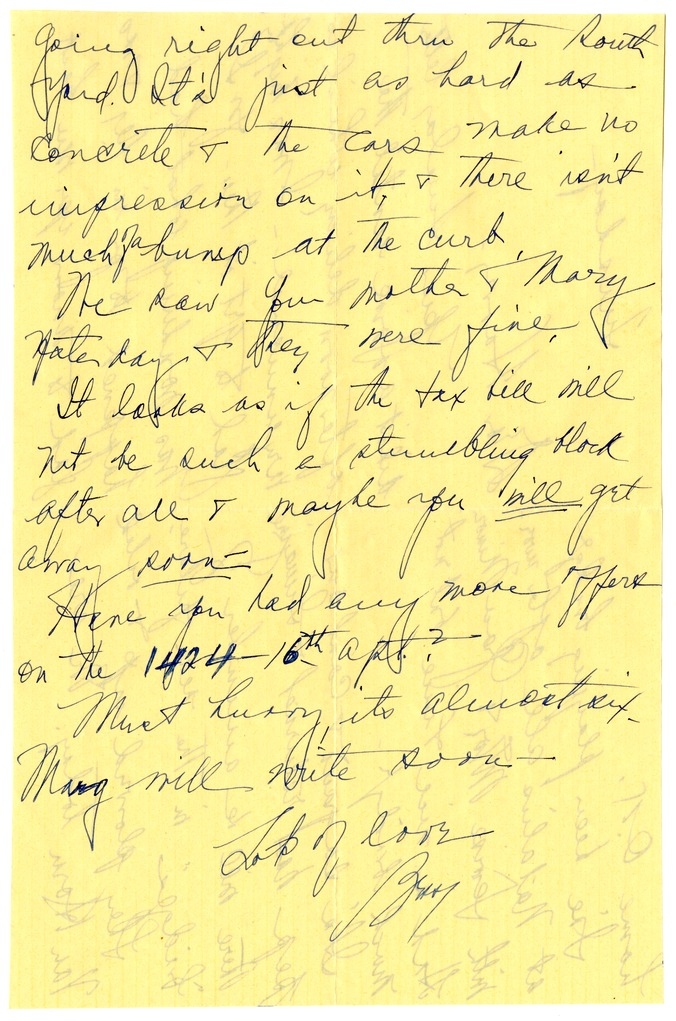 going right out thru the South
Yard. It's just as hard as
concrete & the cars make no
impression on it, & there isn't
much of a bump at the curb.
We saw your mother & Mary
yesterday & they were fine.
It looks as if the tax bill will
not be such a stumbling block
after all & maybe you will get
away soon—
Have you had any more offers
on the 1424—16th apt.?—
Must hurry, its almost six—
Marg will write soon—
Lots of love